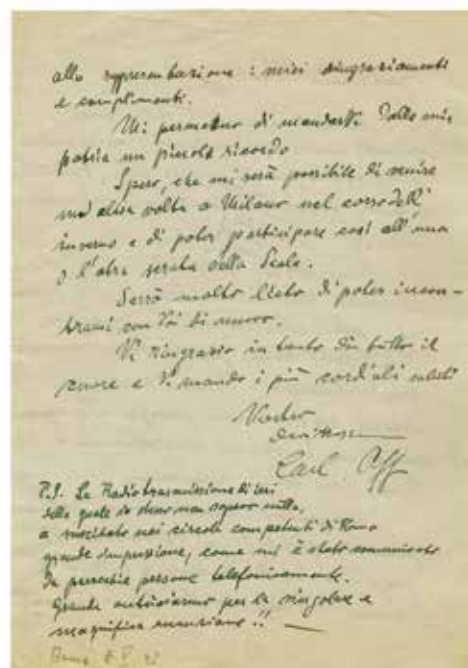 alla rappresentazione i miei ringraziamenti
e complimenti.
Mi permetterò di mandarVi dalla mia
patria un piccolo ricordo
Spero, che mi sarà possibile di venire
altra volta a Milano nel corso dell'
inverno e di poter participare così all'una
o l'altra serata della Scala.
Sarrà molto lieto di poter incon-
trarmi con Voi di nuovo.
Vi ringrazio in tanto di tutto il
cuore e Vi mando i più cordiali saluti
Vostro
Carl Orff
P.S. La Radiotrasmissione di ieri
della quale io non sapevo nulla,
a suscitato nei circoli competenti di Roma
grande impressione, come mi è stato comunicato
da parecchie persone telefonicamente.
Grande entusiasmo per la singolare e
magnifica esecuzione!!
Roma